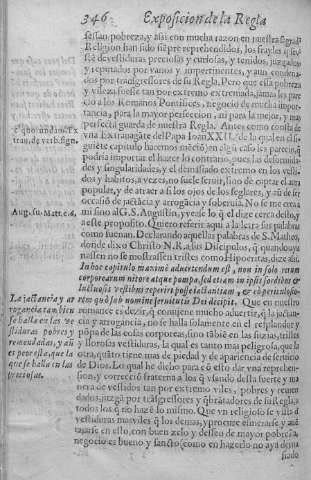 346 Exposicion de la Regla
fessan, pobreza, y assi con mucha razon en nuestra sagrada
Religion han sido siēpre reprehendidos, los frayles q̄ visties-
sē de vestiduras preciosas y curiosas, y tenidos, juzgados
y reputados por vanos y impertinentes, y aun condena-
dos por trãsgressores de su Regla. Pero que esta pobreza
y vileza fuesse tan por extremo extremada, jamas les pare
cio a los Romanos Pontifices, negocio de mucha impor-
tancia, para la mayor perfeccion, ni para la mejor, y mas
perfecta guarda de nuestra Regla. Antes como consta de
vna Extrauagāte del Papa Ioan XXII. de la qual en el si-
guiēte capitulo haremos mēciō) en algũ caso les parecio q̄
podria importar el hazer lo contrario, pues las deformida-
des y singularidades, y el demasiado extremo en los vesti-
dos y habitos, a vezes, no suele seruir, sino de captar el aura
popular, y de atraer a si los ojos de los seglares, y aũ de ser
occasiō de jactãcia y arrogãcia y soberuia. No se me crea a
mi sino al G. S. Augustin, y vease lo q̄ el dize cerca desto, y a
neste proposito. Quiero referir aqui a la letra sus palabras
como suenan. Declarando aquellas palabras de S. Matheo,
donde dixo Christo N. R. a sus Discipulos, q̄ quando ayu
nassen no se mostrassen tristes como Hipocritas, dize assi.
In hoc capitulo maximè aduertendum est, non in solo rerum
corporearum nitore atque pompa, sed etiam in ipsis sordibus &
luctuosis vestibus reperiri posse iactantiam, & eo periculosio-
rem quò sub nomine seruitutis Dei decipit. Que en nuestro
romance es dezir, q̄ conuiene mucho aduertir, q̄ la jactan-
cia y arrogancia, no se halla solamente en el resplandor y
põpa de las cosas corporeas, sino tãbiē en las suzias, tristes
y llorosas vestiduras, la qual es tanto mas peligrosa, que la
otra, quãto tiene mas de piedad y de apariencia de seruicio
de Dios. Lo qual he dicho para q̄ esto dar vna reprehen-
sion, y correctiō fraterna a los q̄ vsando desta suerte y ma
nera de vestidos tan por extremo viles, pobres y remen-
dados, juzgã por trãsgressores y q̄brãtadores de su Regla, a
todos los q̄ no hazē lo mismo. Que vn religioso se vista d̄
vestiduras mas viles q̄ los demas, y procure esmerarse y auē-
tajarse en esto, con buen zelo y desseo de mayor pobreza,
negocio es bueno y sancto; como en hazerlo no aya dema
siado
c. quorundam. Ex
trau. de verb. sign.
Aug. su. Matt. c. 6.
La jactancia y ar
rogancia tambien
se halla en las ve
stiduras pobres y
remendadas, y aũ
es peor esta, que la
que se halla en las
preciosas.